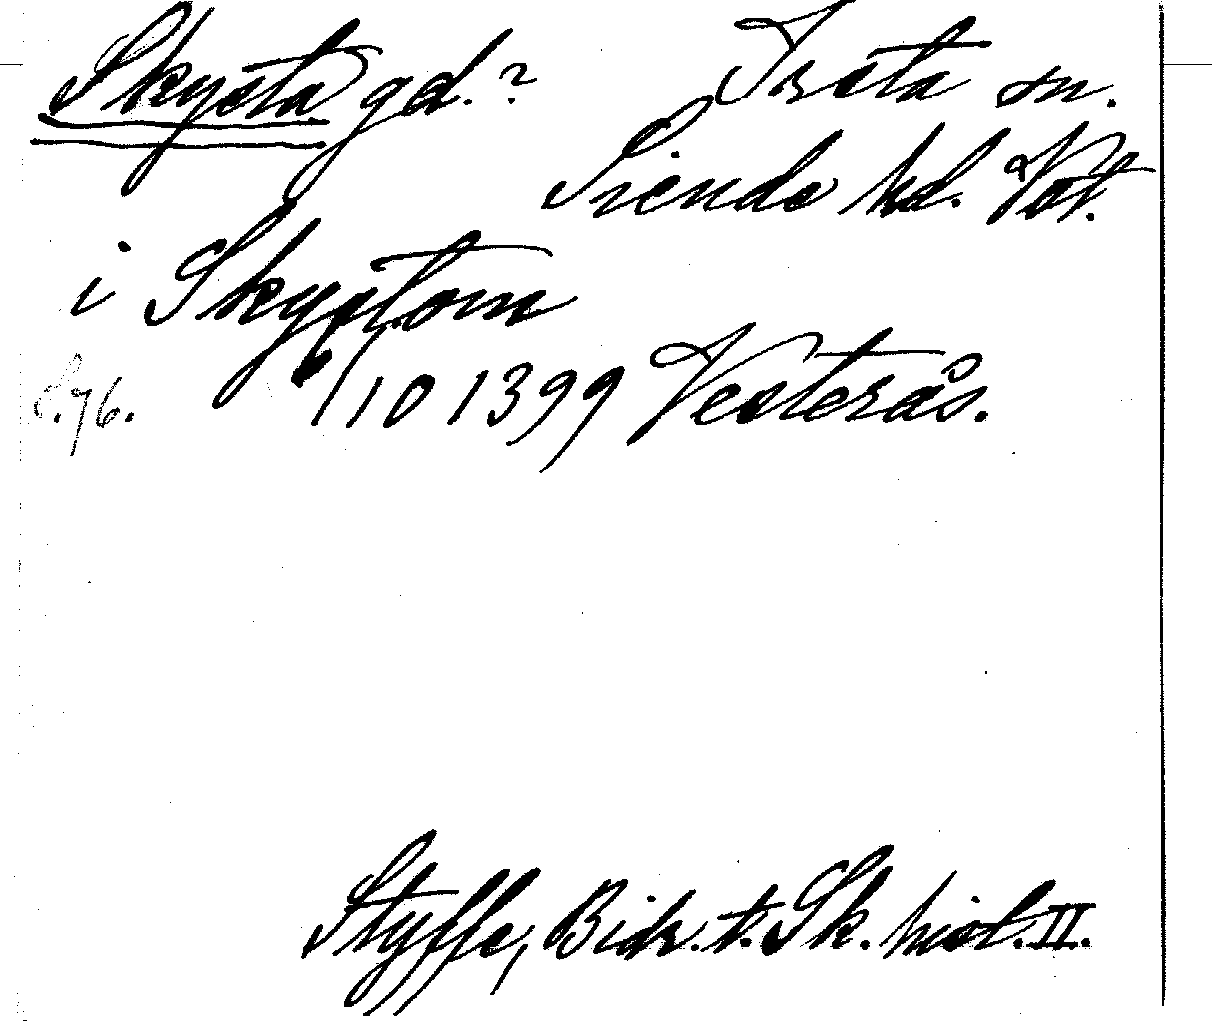 Skysta gd.? Irsta sn.
Siende hd. Vst.
i Skystom
s.76. 1/10 1399 Vesterås.
Styffe, Bidr. t. Sk. hist. II.